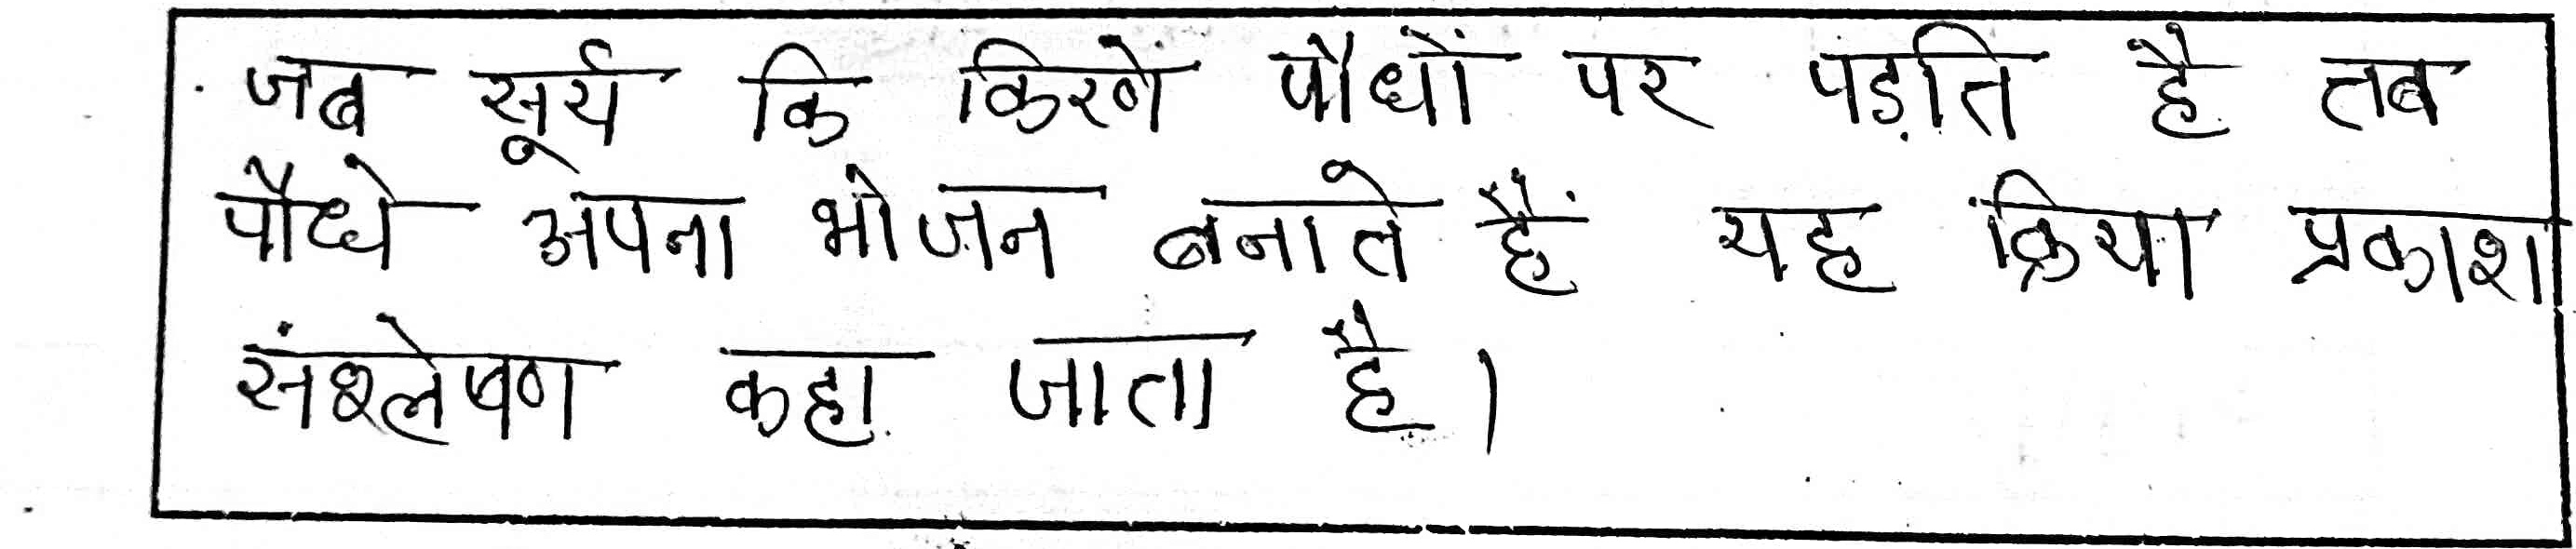 जब सूर्य कि किरणे पौधों पर पड़ति है तब
पौधे अपना भोजन बनाते हैं यह क्रिया प्रकाश
संश्लेषण कहा जाता है।